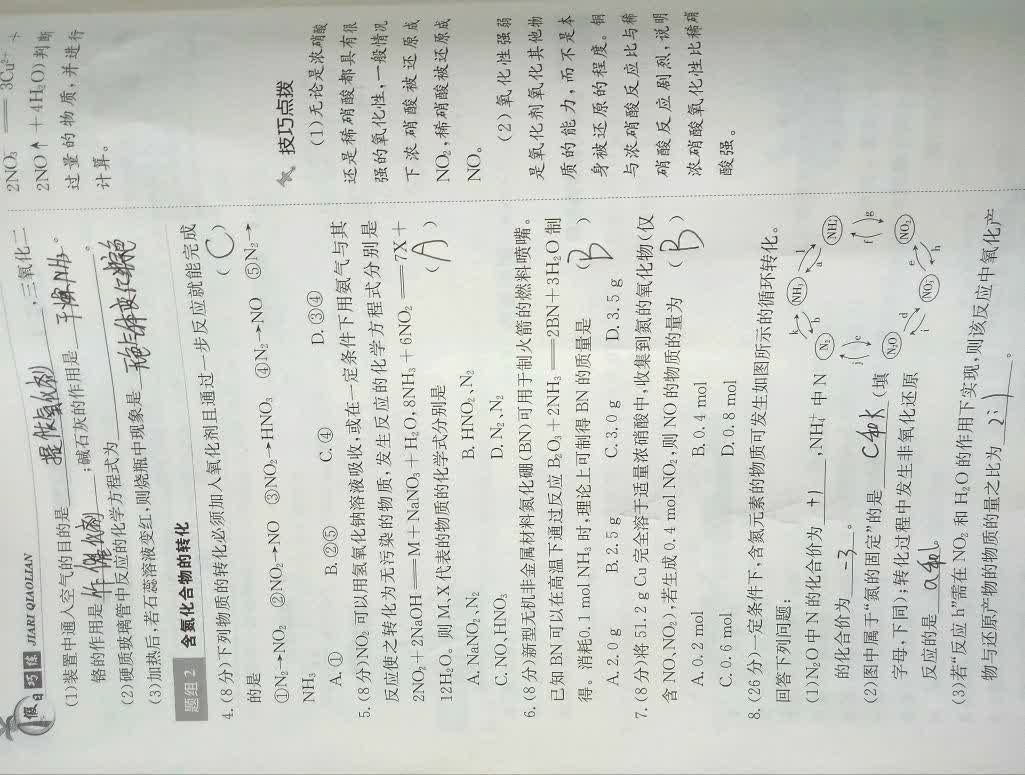 假日巧练 JIARI QIAOLIAN
(1)装置中通入空气的目的是 提供氧气 ,三氧化二
铬的作用是 作催化剂 ;碱石灰的作用是 干燥NH₃ 。
(2)硬质玻璃管中反应的化学方程式为 。
(3)加热后,若石蕊溶液变红,则烧瓶中现象是
题组2 含氮化合物的转化
4.(8分)下列物质的转化必须加入氧化剂且通过一步反应就能完成
的是 ( C )
①N₂→NO₂ ②NO₂→NO ③NO₂→HNO₃ ④N₂→NO ⑤N₂→
NH₃
A.① B.②⑤ C.④ D.③④
5.(8分)NO₂可以用氢氧化钠溶液吸收,或在一定条件下用氨气与其
反应使之转化为无污染的物质,发生反应的化学方程式分别是
2NO₂+2NaOH══M+NaNO₃+H₂O,8NH₃+6NO₂══7X+
12H₂O。则M、X代表的物质的化学式分别是 ( A )
A.NaNO₂、N₂ B.HNO₂、N₂
C.NO、HNO₃ D.N₂、N₂
6.(8分)新型无机非金属材料氮化硼(BN)可用于制火箭的燃料喷嘴。
已知BN可以在高温下通过反应B₂O₃+2NH₃══2BN+3H₂O制
得。消耗0.1 mol NH₃时,理论上可制得BN的质量是 ( B )
A.2.0 g B.2.5 g C.3.0 g D.3.5 g
7.(8分)将51.2 g Cu完全溶于适量浓硝酸中,收集到氮的氧化物(仅
含NO、NO₂),若生成0.4 mol NO₂,则NO的物质的量为 ( B )
A.0.2 mol B.0.4 mol
C.0.6 mol D.0.8 mol
8.(26分)一定条件下,含氮元素的物质可发生如图所示的循环转化。
回答下列问题:
(1)N₂O中N的化合价为 +1 ,NH₄⁺中N
的化合价为 -3 。
(2)图中属于“氮的固定”的是 c和k (填
字母,下同);转化过程中发生非氧化还原
反应的是 a和l 。
(3)若“反应h”需在NO₂和H₂O的作用下实现,则该反应中氧化产
物与还原产物的物质的量之比为 2:1 。
NH₃
l
a
NH₄⁺
k
b
N₂
j
c
N₂O
i
d
NO₃⁻
h
e
NO₂⁻
f
g
2NO₃⁻══3Cu²⁺+
2NO↑+4H₂O)判断
过量的物质,并进行
计算。
技巧点拨
(1)无论是浓硝酸
还是稀硝酸都具有很
强的氧化性,一般情况
下浓硝酸被还原成
NO₂,稀硝酸被还原成
NO。
(2)氧化性强弱
是氧化剂氧化其他物
质的能力,而不是本
身被还原的程度。铜
与浓硝酸反应比与稀
硝酸反应剧烈,说明
浓硝酸氧化性比稀硝
酸强。